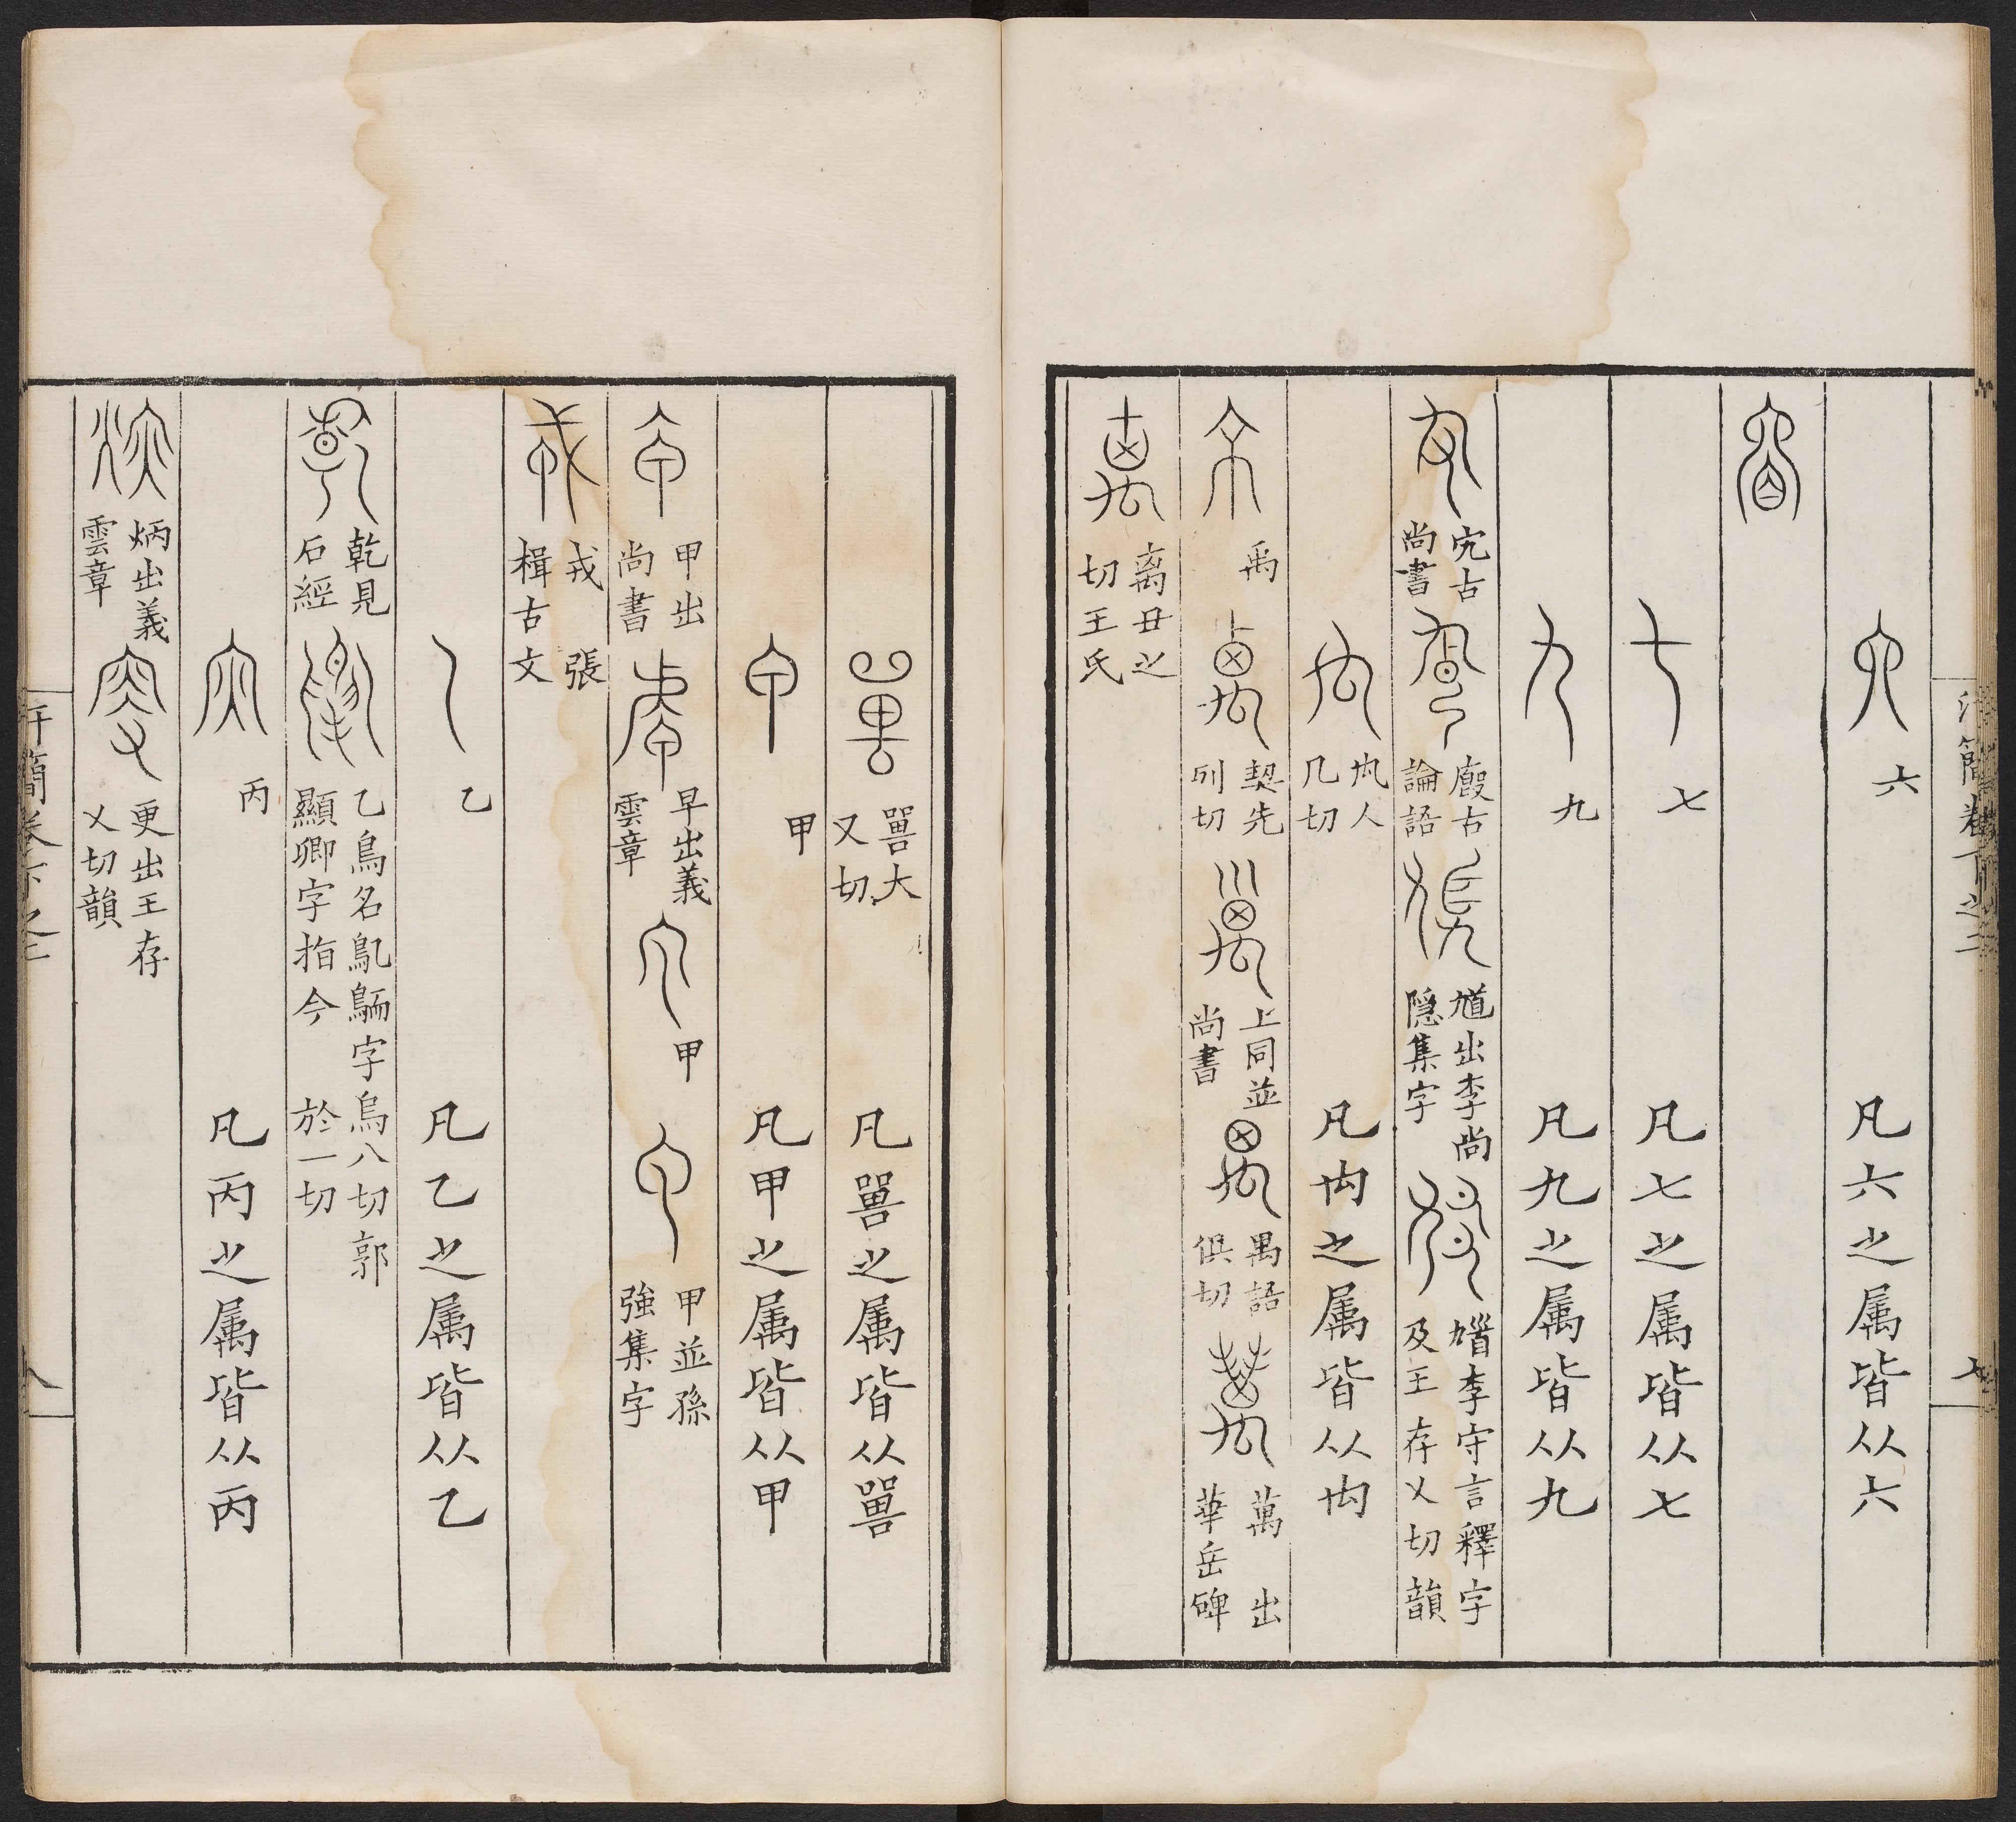 六 凡六之属皆从六
七 凡七之属皆从七
九 凡九之属皆从九
宄古尚書 廏古論語 馗出李尚隱集字 李守言釋字及王存乂切韻
禸人几切 凡禸之属皆从禸
禹 禼先列切 上同並尚書 禺語俱切 萬出華岳碑
离丑之切王氏
嘼大又切 凡嘼之属皆从嘼
甲 凡甲之属皆从甲
甲出尚書 早出義雲章 甲 甲並孫強集字
戎 張楫古文
乙 凡乙之属皆从乙
乾見石經 乙鳥名鳦鳾字烏八切郭顯卿字指今於一切
丙 凡丙之属皆从丙
炳出義雲章 更出王存乂切韻
汗簡卷下之二
七
汗簡卷下之二
八